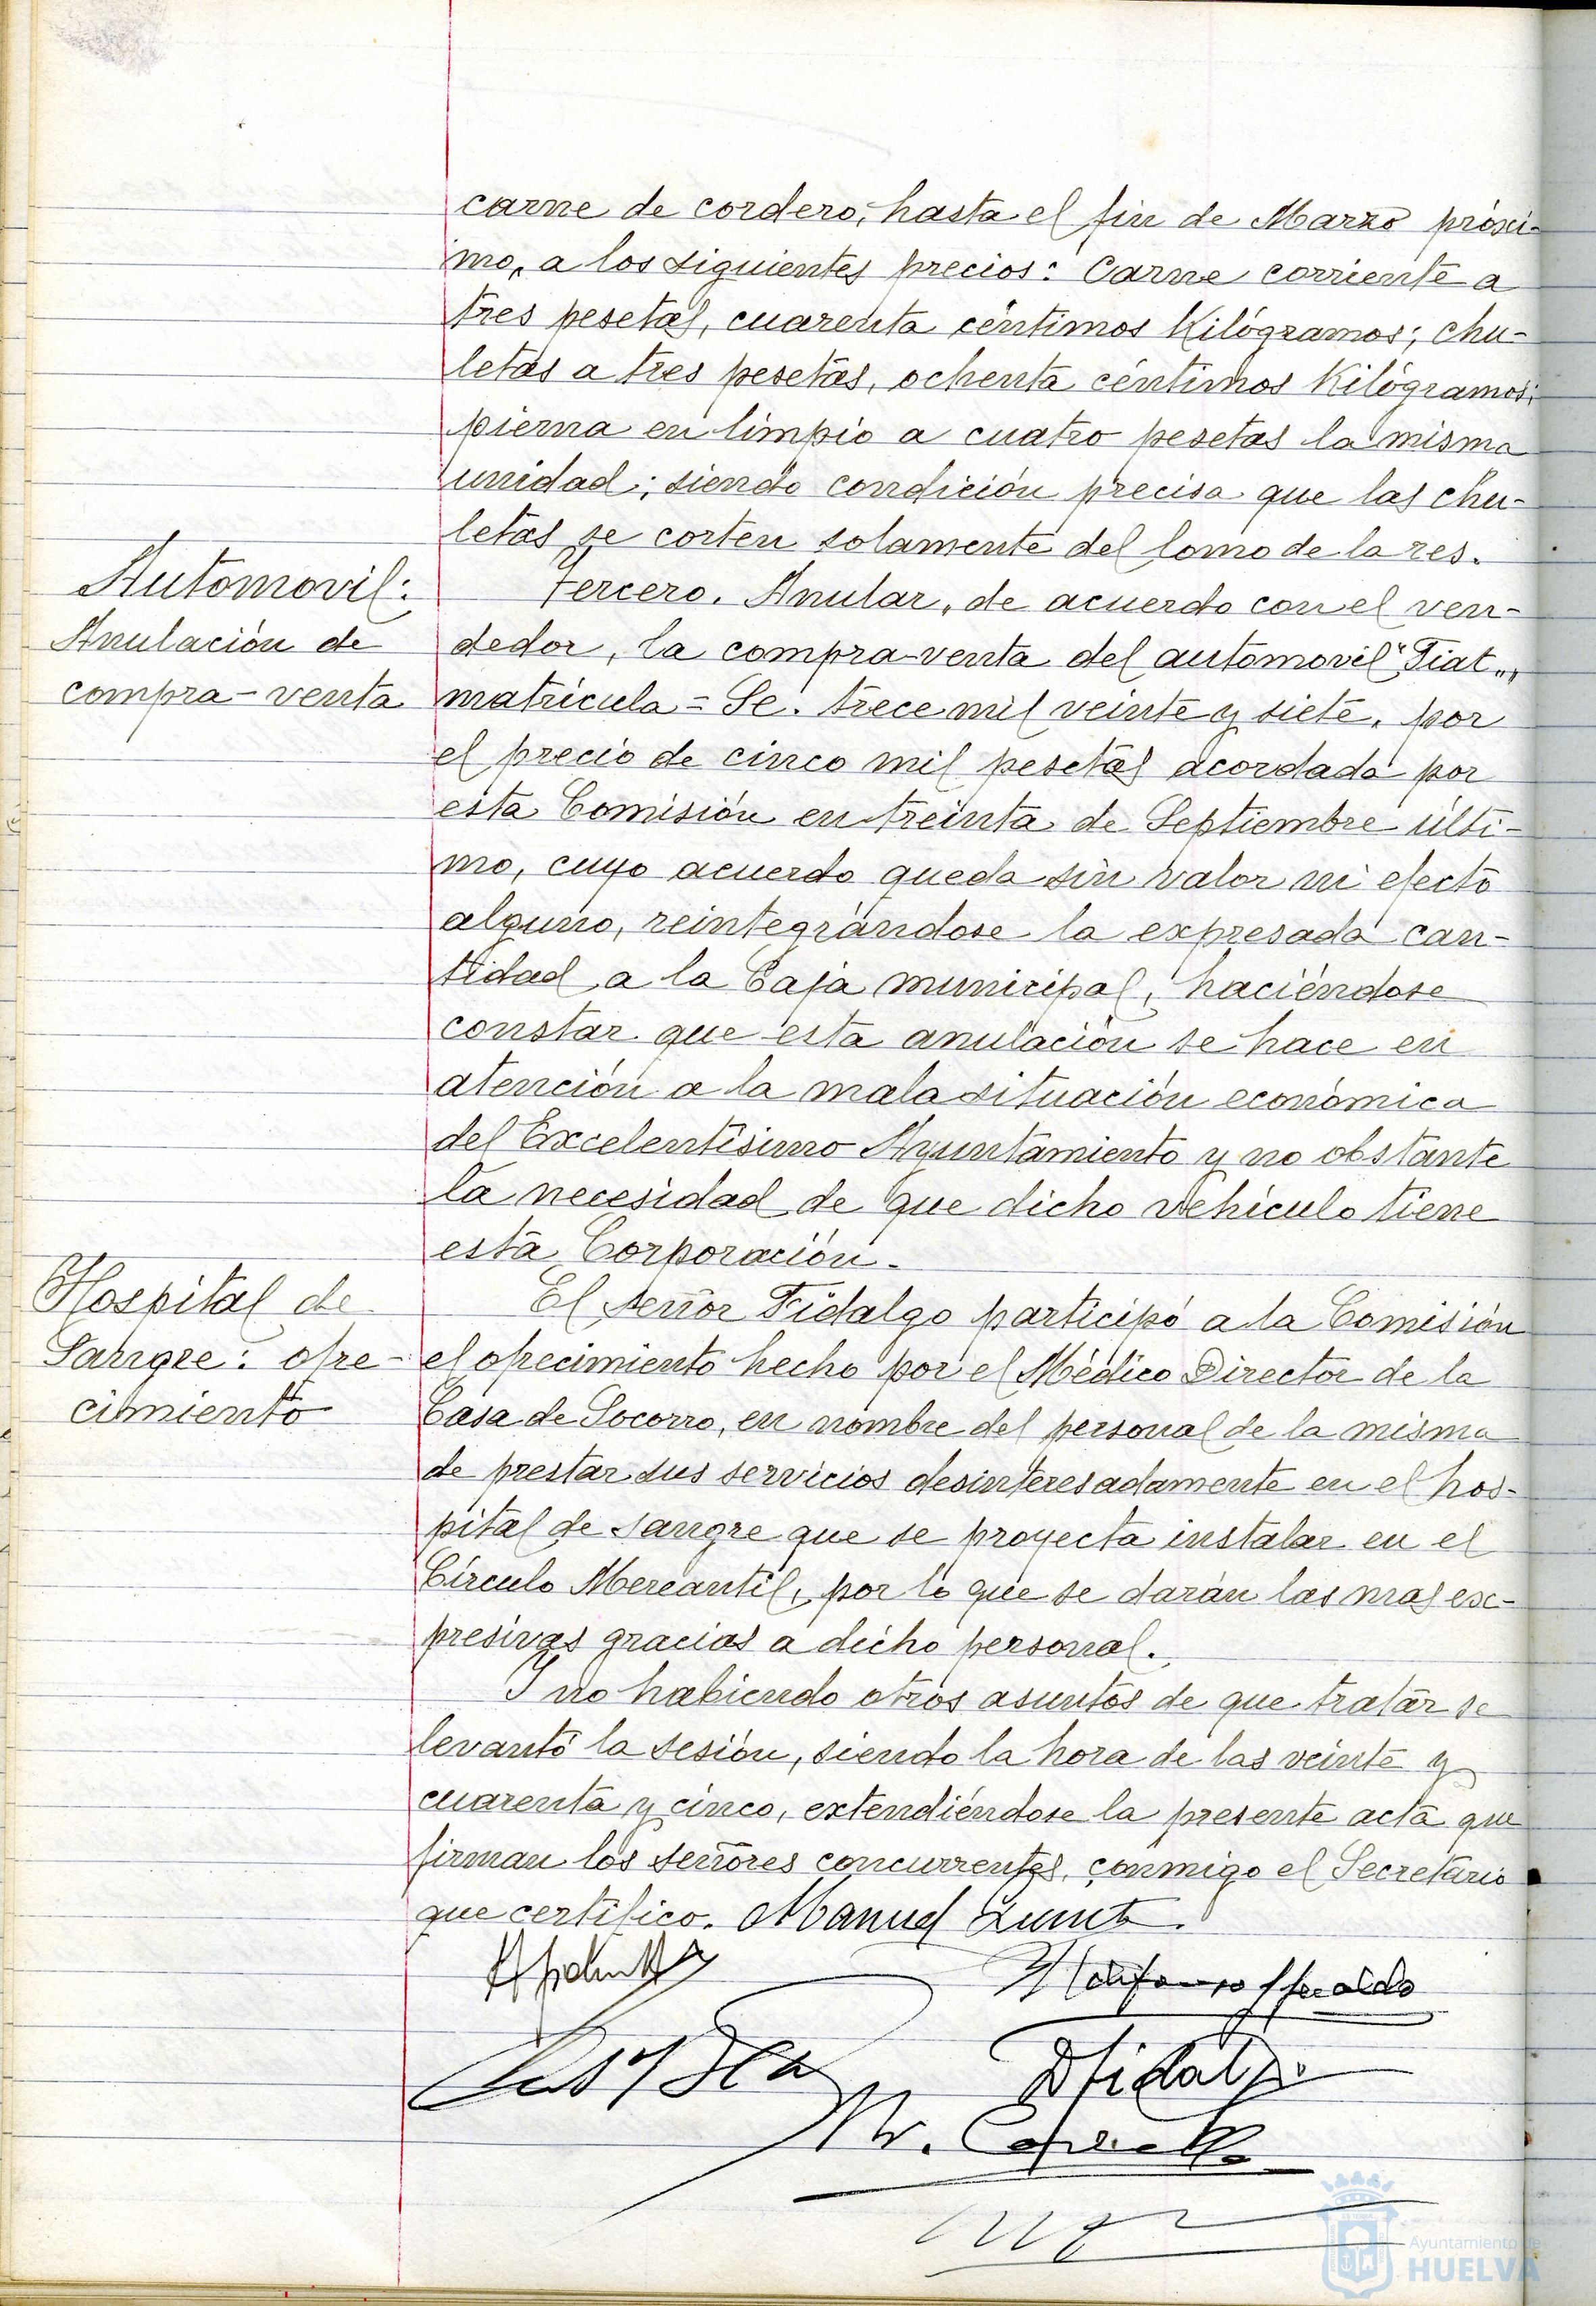 carne de cordero, hasta el fin de Marzo próxi-
mo, a los siguientes precios: Carne corriente a
tres pesetas, cuarenta céntimos Kilógramos; chu-
letas a tres pesetas, ochenta céntimos Kilógramos;
pierna en limpio a cuatro pesetas la misma
unidad; siendo condición precisa que las chu-
letas se corten solamente del lomo de la res.
Automovil:
Anulación de
compra-venta
Tercero. Anular, de acuerdo con el ven-
dedor, la compra-venta del automovil "Fiat",
matrícula = Se. trece mil veinte y siete, por
el precio de cinco mil pesetas acordada por
esta Comisión en treinta de Septiembre últi-
mo, cuyo acuerdo queda sin valor ni efecto
alguno, reintegrándose la expresada can-
tidad a la Caja municipal, haciéndose
constar que esta anulación se hace en
atención a la mala situación económica
del Excelentísimo Ayuntamiento y no obstante
la necesidad de que dicho vehículo tiene
esta Corporación.
Hospital de
Sangre: ofre-
cimiento
El señor Fidalgo participó a la Comisión
el ofrecimiento hecho por el Médico Director de la
Casa de Socorro, en nombre del personal de la misma
de prestar sus servicios desinteresadamente en el hos-
pital de sangre que se proyecta instalar en el
Círculo Mercantil, por lo que se darán las mas ex-
presivas gracias a dicho personal.
Y no habiendo otros asuntos de que tratar se
levantó la sesión, siendo la hora de las veinte y
cuarenta y cinco, extendiéndose la presente acta que
firman los señores concurrentes, conmigo el Secretario
que certifico. Manuel
D Fidalgo
Ayuntamiento de
HUELVA